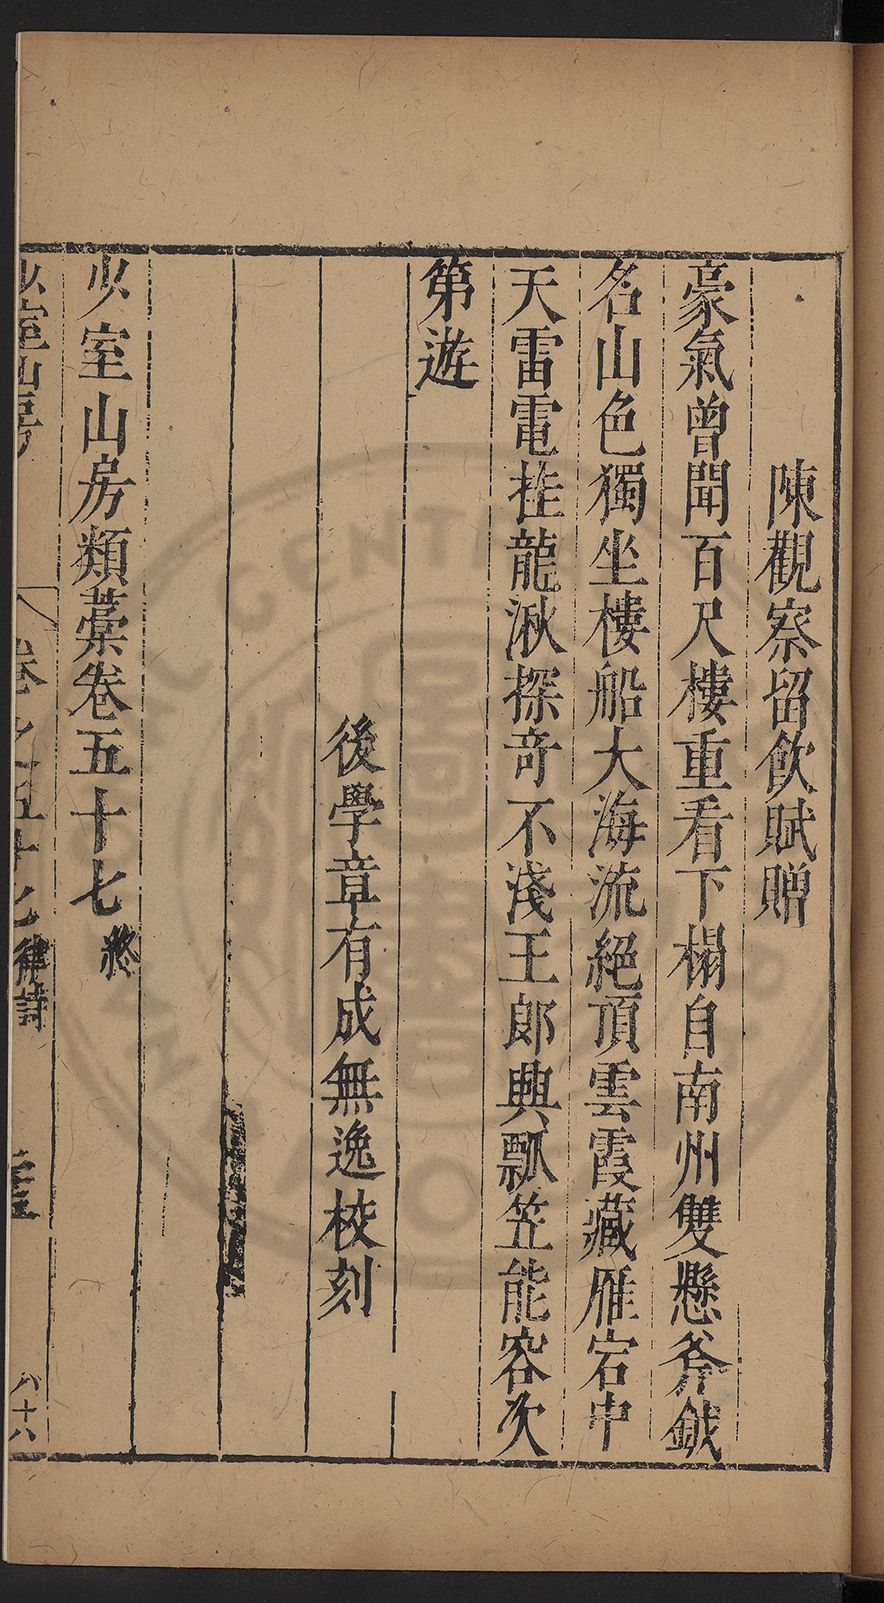 陳觀察留飲賦贈
豪氣曾聞百尺樓重看下榻自南州雙懸斧鉞
名山色獨坐樓船大海流絕頂雲霞藏雁宕中
天雷電挂龍湫探奇不淺王郎興瓢笠能容次
第遊
後學章有成無逸校刻
少室山房類藁卷五十七 終
少室山房 卷之五十七 律詩 六十八